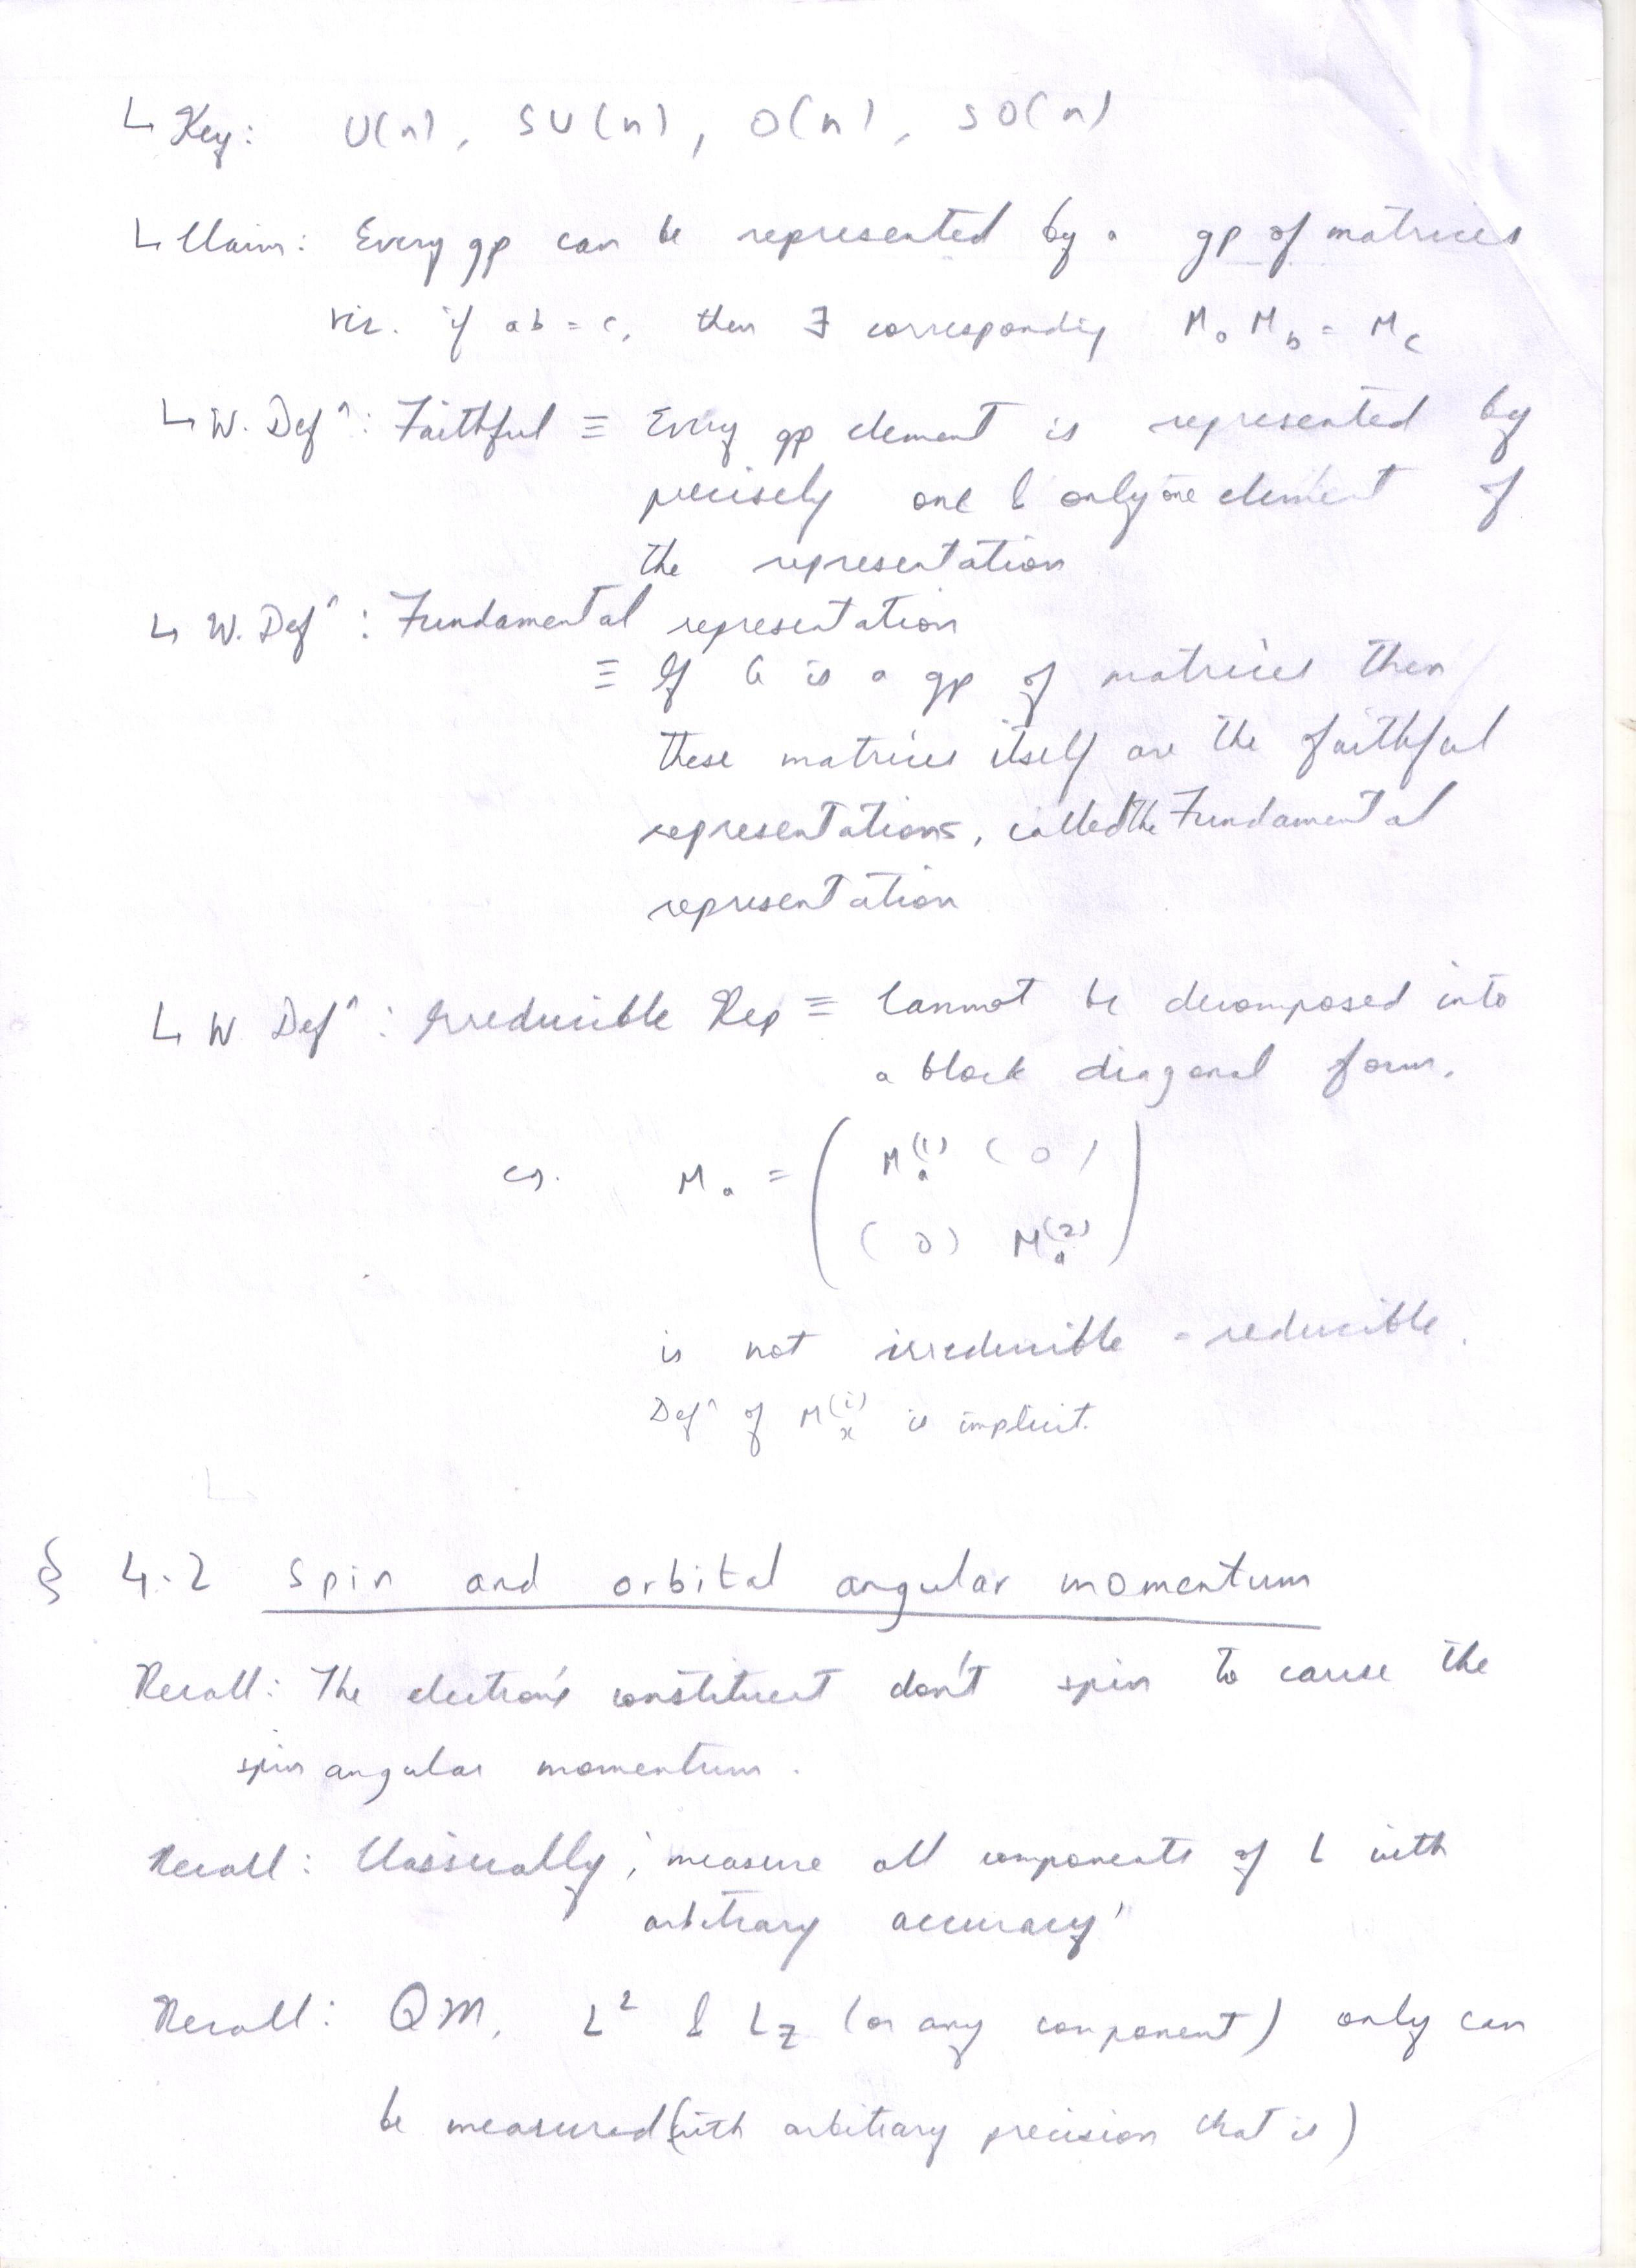 ↳ Key: U(n), SU(n), O(n), SO(n)
↳ Claim: Every gp can be represented by a gp of matrices
viz. if ab = c, then ∃ corresponding M_a M_b = M_c
↳ W. Defⁿ: Faithful ≡ Every gp element is represented by
precisely one & only one element of
the representation
↳ W. Defⁿ: Fundamental representation
≡ If G is a gp of matrices then
these matrices itself are the faithful
representations, called the Fundamental
representation
↳ W Defⁿ: Irreducible Rep ≡ Cannot be decomposed into
a block diagonal form.
eg. M_a = ( M_a^(1) (0)
(0) M_a^(2) )
is not irreducible = reducible.
Defⁿ of M_x^(i) is implicit.
§ 4.2 Spin and orbital angular momentum
Recall: The electron's constituent don't spin to cause the
spin angular momentum.
Recall: Classically, 'measure all components of L with
arbitrary accuracy'
Recall: QM, L² & L_z (or any component) only can
be measured (with arbitrary precision that is)